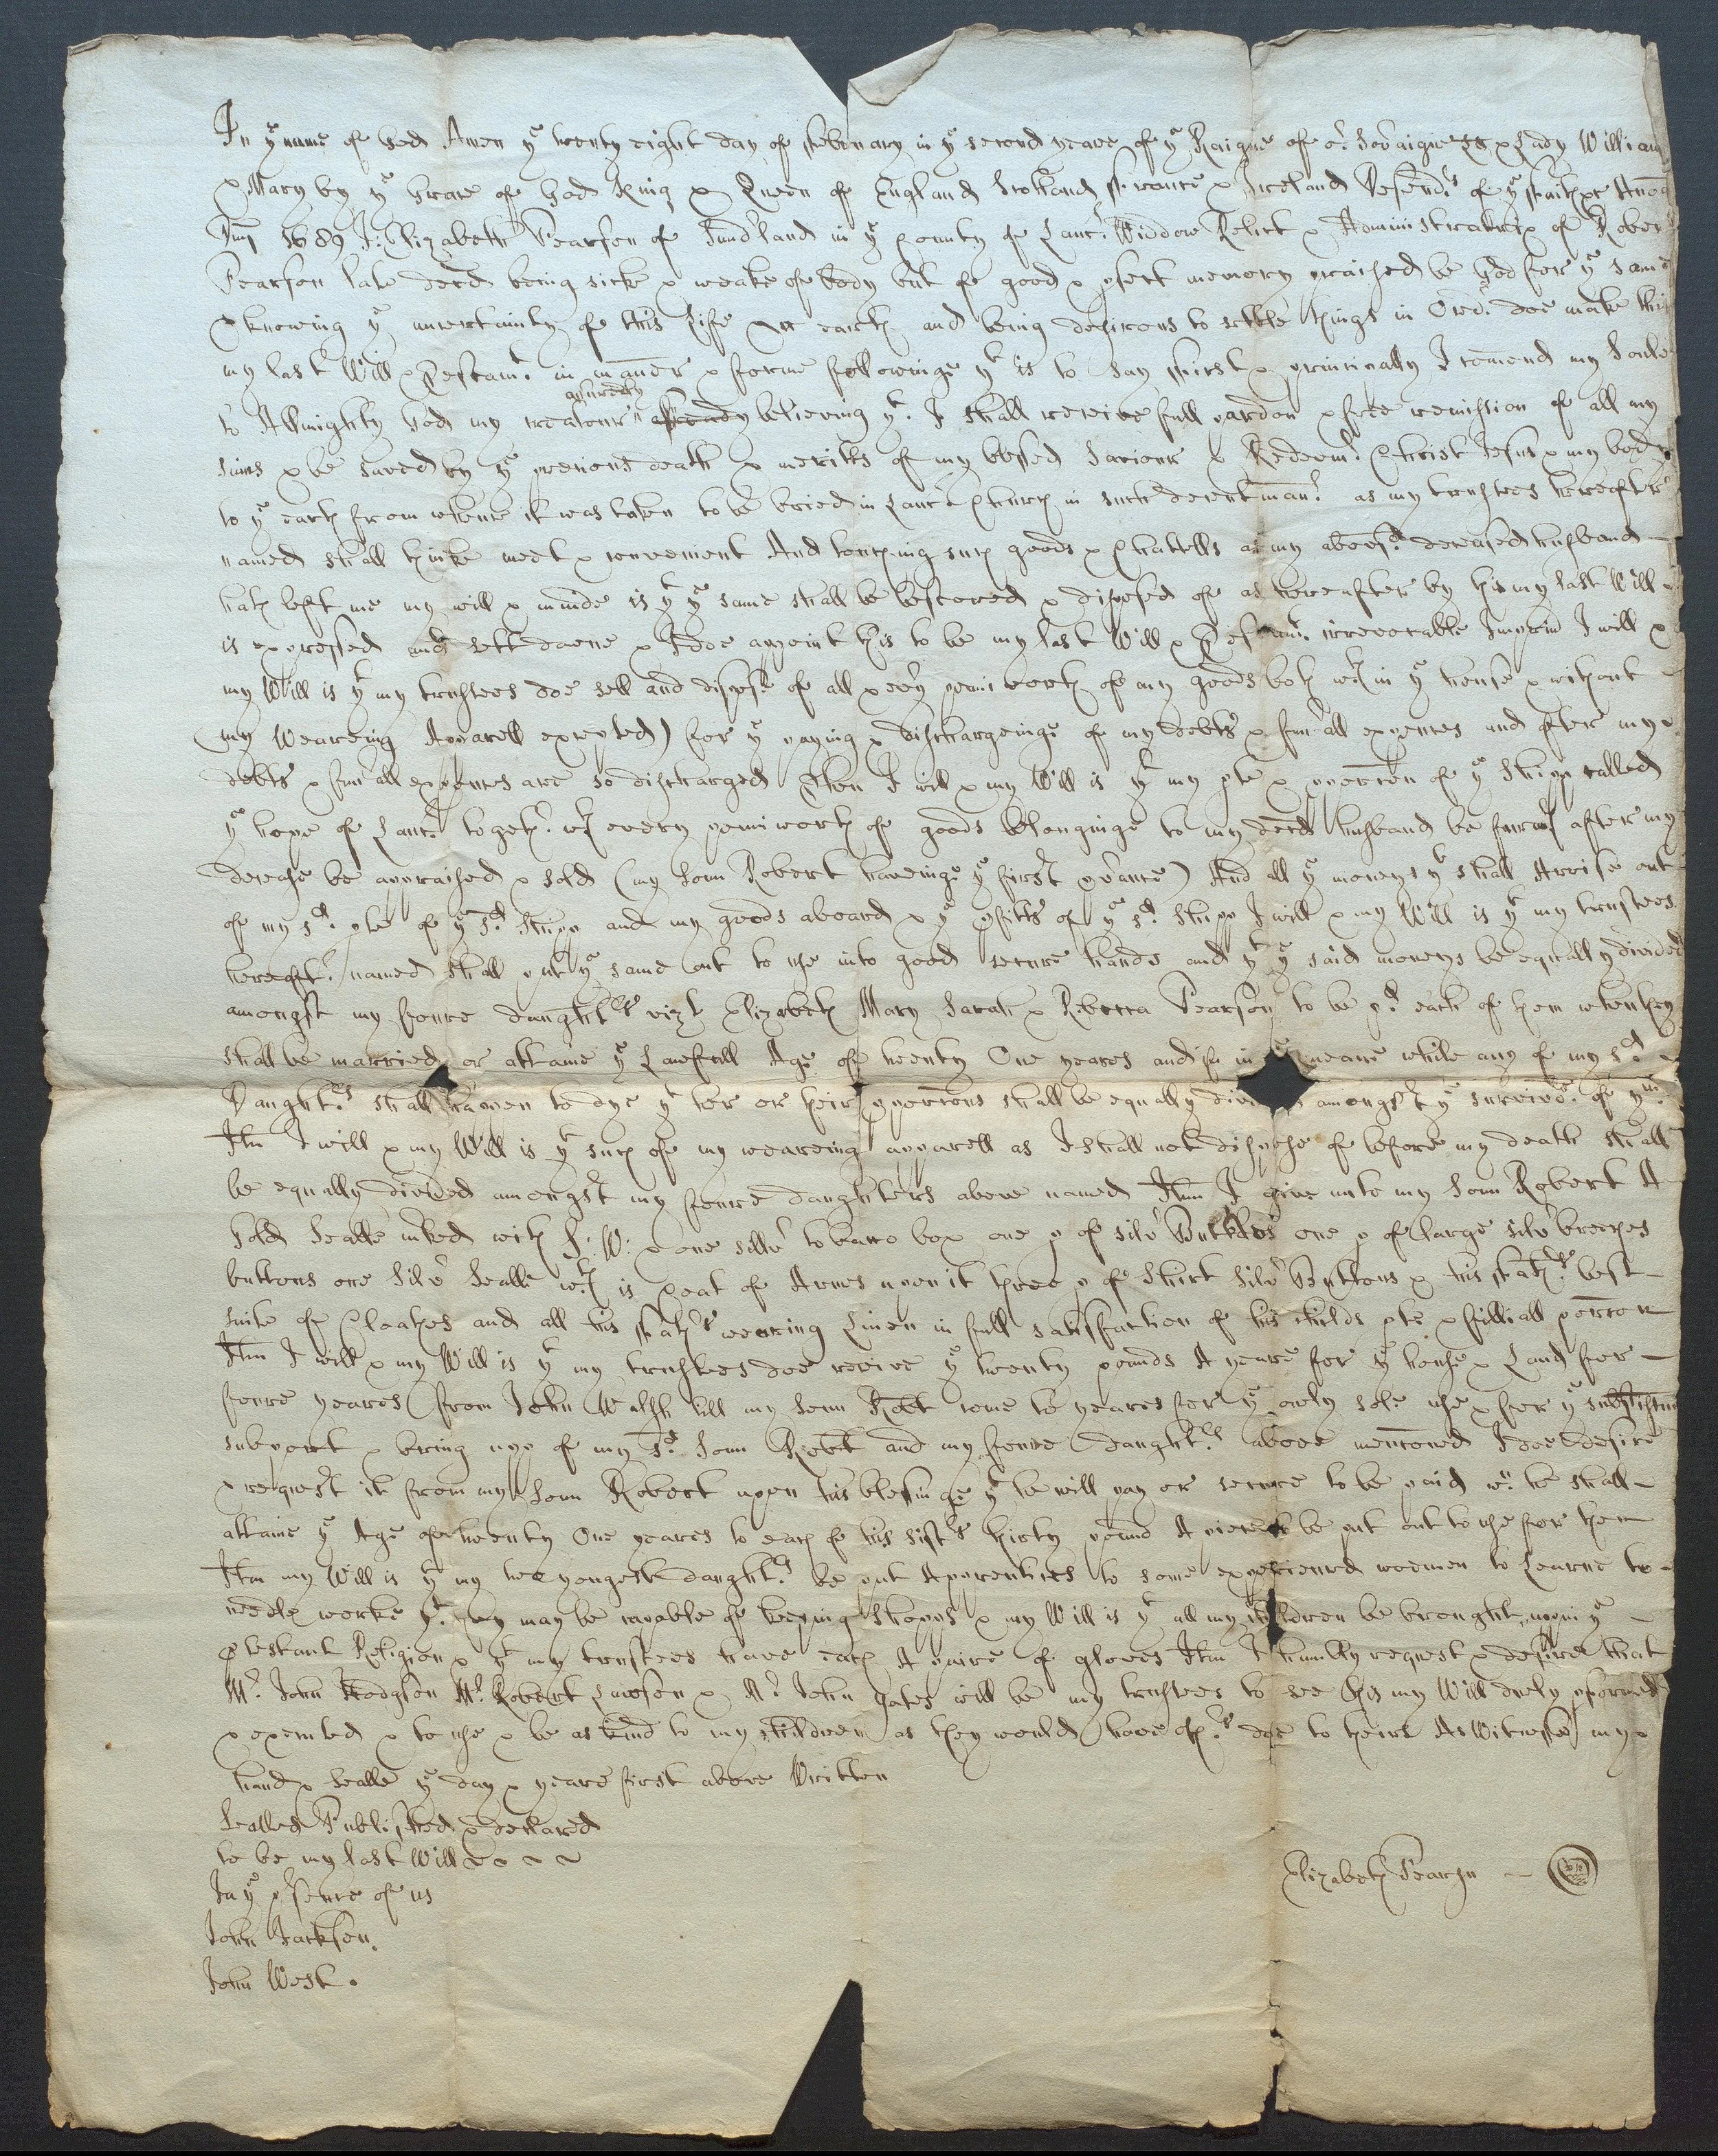 In ye name of God Amen ye twenty eight day of ffebruary in ye second yeare of ye Raigne of or Sov'aigne Ld & Lady William
& Mary by ye Grace of God King & Queen of England Scotland ffrance & Ireland Defendrs of ye ffaith &c Anoq
Dm̄ 1689 I: Elizabeth Pearson of Sund'land in ye County of Lancr Widdow Relict & Administratrix of Robert
Pearson late decd being sick & weake of body but of good & pfect memory praised be God for ye same
& knowing ye uncertainty of this Life on earth and being desirous to settle things in Ordr doe make this
my last Will & Testamt in maner & forme followinge yt is to say ffirst & principally I comend my Soule
to Allmighty God my creatour assuredly believing yt I shall receive full pardon & free remission of all my
sinns & be saved by ye precious death & meritts of my blessed Saviour & Redeemr Christ Jesus & my body
to ye earth from whence it was taken to be buried in Lancr Church in such decent manr as my trustees hereafter
named shall thinke meet & convenient And touching such goods & Chattells as my abovesd deceased husband
hath left me my will & minde is yt ye same shall be bestowed & disposed of as hereafter by this my last Will
is expressed and sett downe & I doe appoint this to be my last Will & Testamt irrevocable Imprim I will &
my Will is yt my trustees doe sell and dispose of all & ev'y peniworth of my goods both wthin ye house & without
(my Weareing Aparell excepted) for ye paying & dischargeinge of my debts & fun'all expences and after my
debts & fun'all expences are so discharged Then I will & my Will is yt my pte & porcon of ye Shipp called
ye hope of Lancr togethr wth every peniworth of goods belonginge to my decd husband be furwth after my
decease be appraised & sold (my Sonn Robert haveinge ye first p'ance) And all ye moneys yt shall Arrise out
of my sd pte of ye sd Shipp and my goods aboard & ye pfitts of ye sd Shipp I will & my Will is yt my trustees
hereaftr named shall put ye same out to use into good secure hands and yt ye said moneys be equally divided
amongst my foure daughtrs vizt Elizabeth Mary Sarah & Rebecca Pearson to be pd each of them when they
shall be married or attaine ye Lawfull Age of twenty One yeares and if in ye meane while any of my sd
Daughtrs shall happen to dye yt her or their porcons shall be equally divided amongst ye survivrs of ym
Itm I will & my Will is yt such of my weareing apparell as I shall not dispose of before my death shall
be equally divided amongst my foure daughters above named Itm I give unto my Sonn Robert A
Gold Sealle m'ked with S: W: & one sillv' tobacco box one p of silv' Buckles one p of large silv' breeches
buttons one Silv' Sealle wth is Coat of Armes upon it three p of Shirt Silv' Buttons & his ffathrs best
suite of Cloathes and all his ffathrs wearing Linen in full satisfaction of his childs pte & filliall porcon
Itm I will & my Will is yt my trustees doe receive ye twenty pounds A yeare for ye house & Land for
foure yeares from John Walsh till my Sonn Robt come to yeares for ye only sole use & for ye
support & bring upp of my sd Sonn Robt and my foure daughtrs above mencond I doe desire
& request it from my Sonn Robert upon his blessinge yt he will pay or secure to be paid wn he shall
attaine ye Age of twenty One yeares to each of his sistrs thirty pound A piece to be put out to use for them
Itm my Will is yt my two yongest daughtrs be put Apprentices to some experienced woemen to Learne to
needle worke yt they may be capable of keeping Shopps & my Will is yt all my children be brought upp in ye
ptestant Religion & yt my trustees have each A paire of gloves Itm I humbly request & desire that
Mr John Hodgson Mr Robert Lawson & Mr John Gates will be my trustees to see this my Will duely pformed
& executed & to use & be as kind to my children as they would have othrs doe to theirs As Witnesse my
hand & Sealle ye day & yeare first above Written
Sealled Published & declared
to be my last Will
In ye p'sence of us
John Jackson.
John West.
Elizabeth Pearson